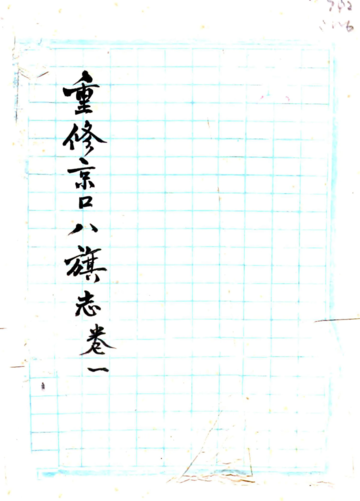 重修京口八旗志卷一